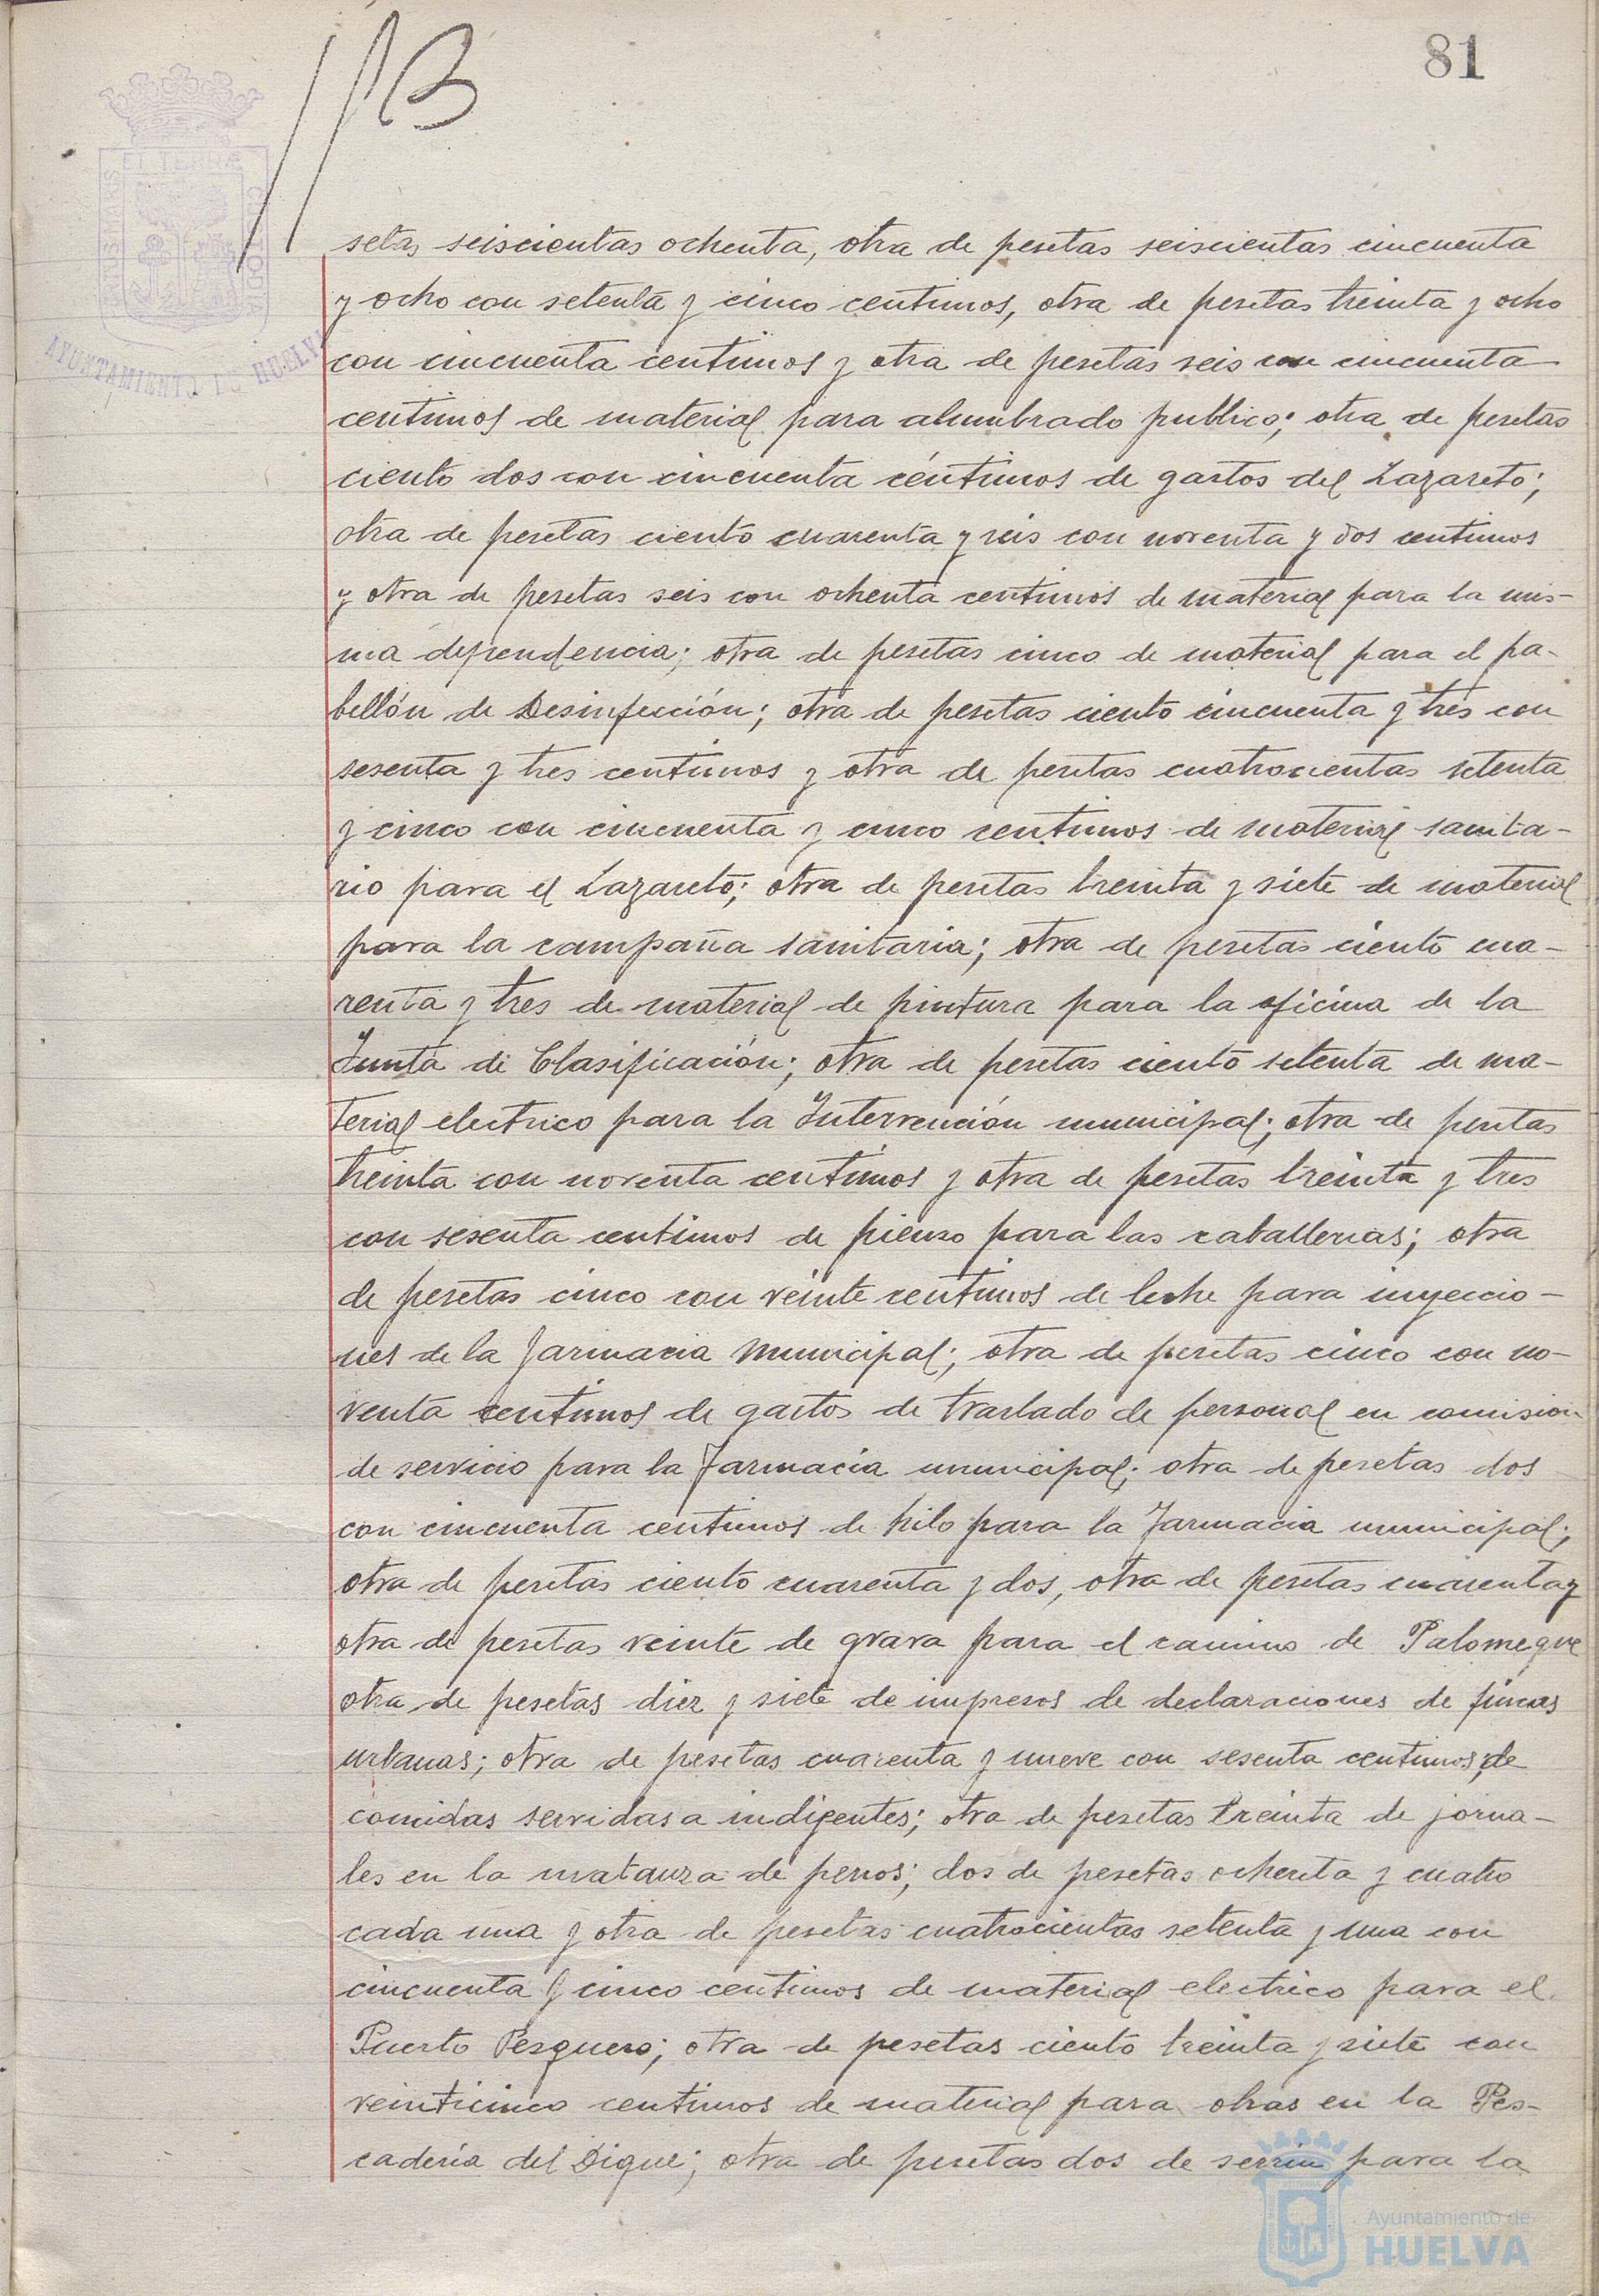 81
setas seiscientas ochenta, otra de pesetas seiscientas cincuenta
y ocho con setenta y cinco centimos, otra de pesetas treinta y ocho
con cincuenta centimos y otra de pesetas seis con cincuenta
centimos de material para alumbrado publico; otra de pesetas
ciento dos con cincuenta céntimos de gastos del Lazareto;
otra de pesetas ciento cuarenta y seis con noventa y dos centimos
y otra de pesetas seis con ochenta centimos de material para la mis-
ma dependencia; otra de pesetas cinco de material para el pa-
bellón de Desinfección; otra de pesetas ciento cincuenta y tres con
sesenta y tres centimos y otra de pesetas cuatrocientas setenta
y cinco con cincuenta y cinco centimos de material sanita-
rio para el Lazareto; otra de pesetas treinta y siete de material
para la campaña sanitaria; otra de pesetas ciento cua-
renta y tres de material de pintura para la oficina de la
Junta de Clasificación; otra de pesetas ciento setenta de ma-
terial electrico para la Intervención municipal; otra de pesetas
treinta con noventa centimos y otra de pesetas treinta y tres
con sesenta centimos de pienso para las caballerias; otra
de pesetas cinco con veinte centimos de leche para inyeccio-
nes de la farmacia Municipal; otra de pesetas cinco con no-
venta centimos de gastos de traslado de personal en comision
de servicio para la farmacia municipal; otra de pesetas dos
con cincuenta centimos de hilo para la farmacia municipal;
otra de pesetas ciento cuarenta y dos, otra de pesetas cuarenta y
otra de pesetas veinte de grava para el camino de Palomeque
otra de pesetas diez y siete de impresos de declaraciones de fincas
urbanas; otra de pesetas cuarenta y nueve con sesenta centimos, de
comidas servidas a indigentes; otra de pesetas treinta de jorna-
les en la matanza de perros; dos de pesetas ochenta y cuatro
cada una y otra de pesetas cuatrocientas setenta y una con
cincuenta y cinco centimos de material electrico para el
Puerto Pesquero; otra de pesetas ciento treinta y siete con
veinticinco centimos de material para obras en la Pes-
cadería del Dique; otra de pesetas dos de serrin para la
AYUNTAMIENTO DE HUELVA
Ayuntamiento de
HUELVA